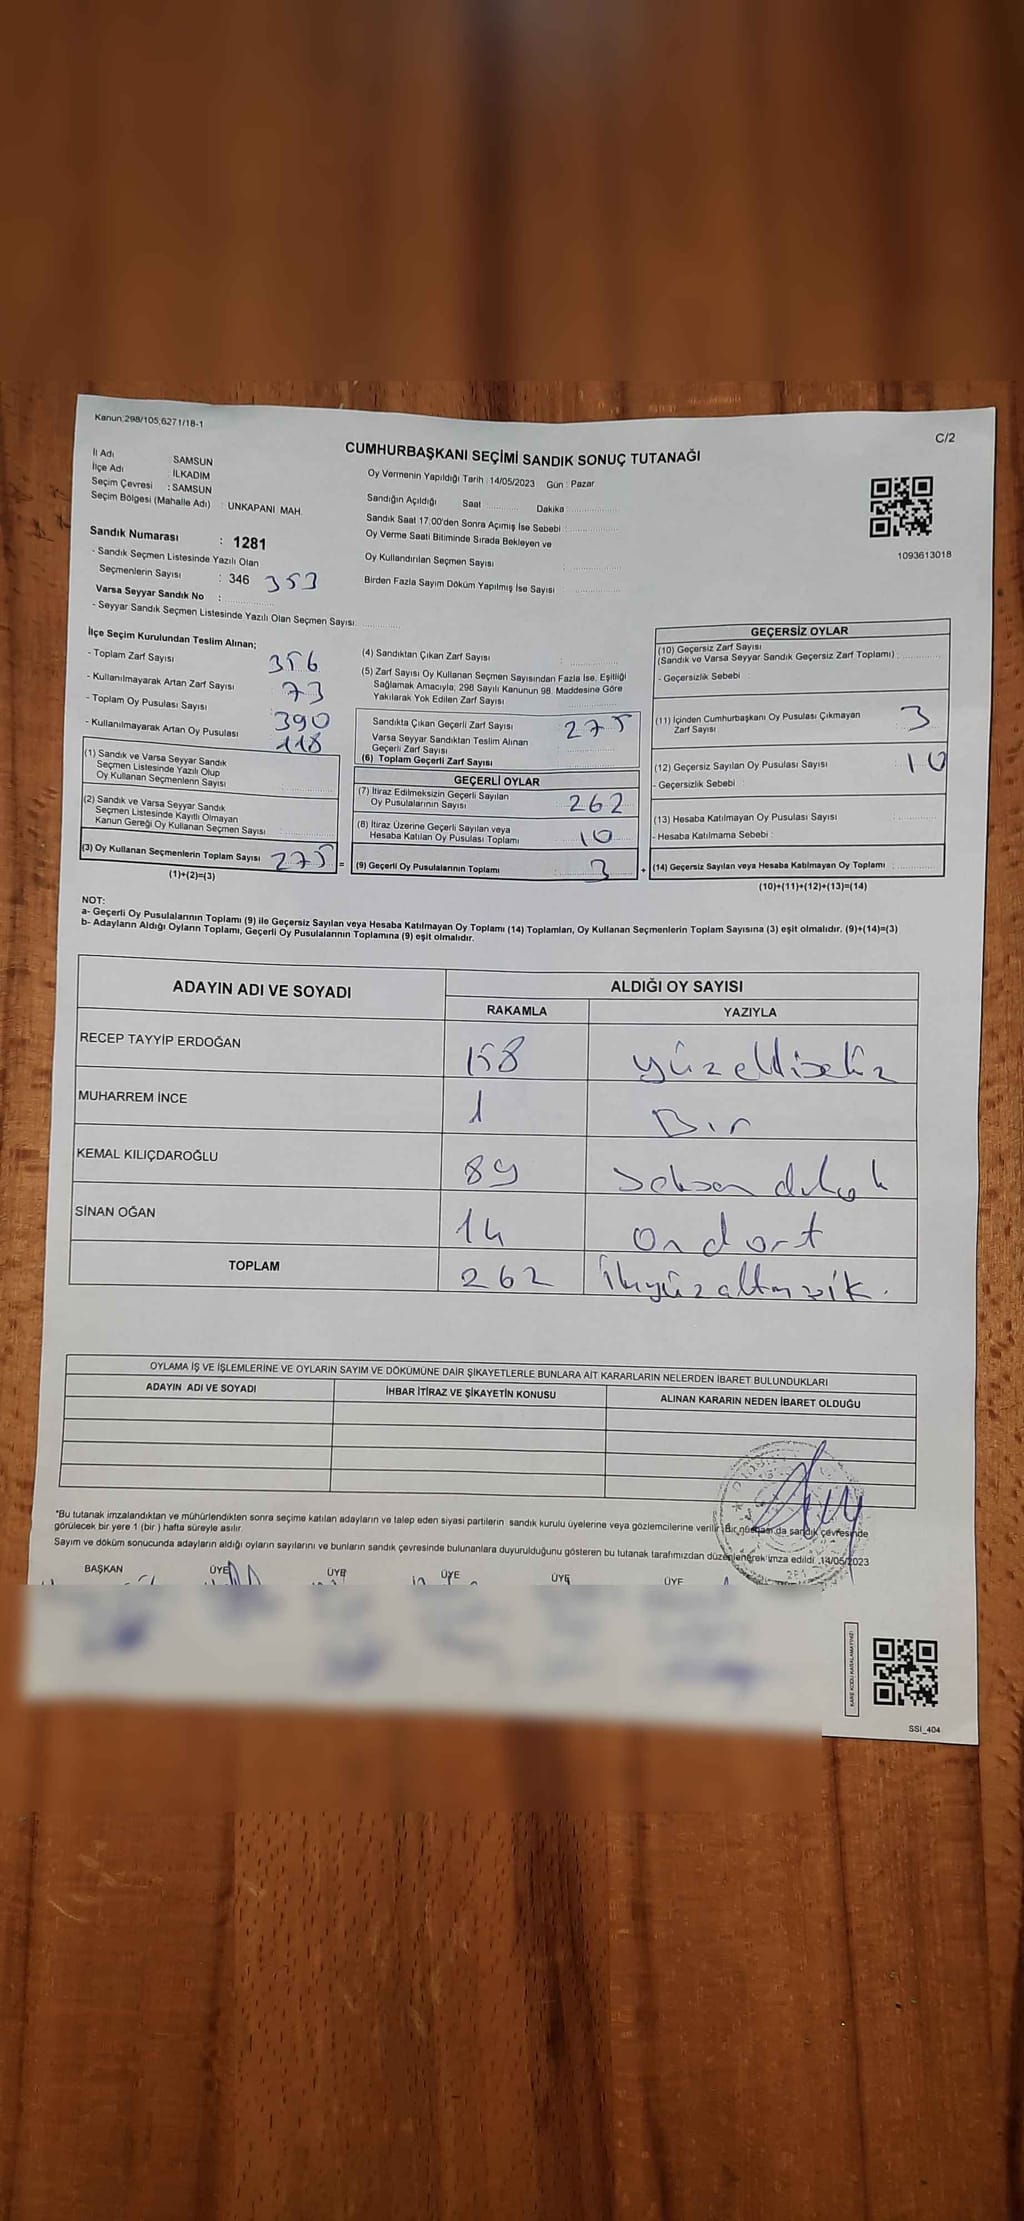 Kanun:298/105,6271/18-1
C/2
CUMHURBAŞKANI SEÇİMİ SANDIK SONUÇ TUTANAĞI
İl Adı : SAMSUN
İlçe Adı : İLKADIM
Seçim Çevresi : SAMSUN
Seçim Bölgesi (Mahalle Adı) : UNKAPANI MAH.
Oy Vermenin Yapıldığı Tarih : 14/05/2023 Gün : Pazar
Sandığın Açıldığı Saat ............ Dakika ............
Sandık Saat 17:00'den Sonra Açımış İse Sebebi :
Oy Verme Saati Bitiminde Sırada Bekleyen ve
Oy Kullandırılan Seçmen Sayısı :
Birden Fazla Sayım Döküm Yapılmış İse Sayısı :
1093613018
Sandık Numarası : 1281
- Sandık Seçmen Listesinde Yazılı Olan
Seçmenlerin Sayısı : 346 353
Varsa Seyyar Sandık No :
- Seyyar Sandık Seçmen Listesinde Yazılı Olan Seçmen Sayısı:
İlçe Seçim Kurulundan Teslim Alınan;
- Toplam Zarf Sayısı 356
- Kullanılmayarak Artan Zarf Sayısı 73
- Toplam Oy Pusulası Sayısı 390
- Kullanılmayarak Artan Oy Pusulası 118
(1) Sandık ve Varsa Seyyar Sandık
Seçmen Listesinde Yazılı Olup
Oy Kullanan Seçmenlerin Sayısı
(2) Sandık ve Varsa Seyyar Sandık
Seçmen Listesinde Kayıtlı Olmayan
Kanun Gereği Oy Kullanan Seçmen Sayısı
(3) Oy Kullanan Seçmenlerin Toplam Sayısı 275 =
(1)+(2)=(3)
(4) Sandıktan Çıkan Zarf Sayısı
(5) Zarf Sayısı Oy Kullanan Seçmen Sayısından Fazla İse, Eşitliği
Sağlamak Amacıyla; 298 Sayılı Kanunun 98. Maddesine Göre
Yakılarak Yok Edilen Zarf Sayısı
Sandıkta Çıkan Geçerli Zarf Sayısı 275
Varsa Seyyar Sandıktan Teslim Alınan
Geçerli Zarf Sayısı
(6) Toplam Geçerli Zarf Sayısı
GEÇERLİ OYLAR
(7) İtiraz Edilmeksizin Geçerli Sayılan
Oy Pusulalarının Sayısı 262
(8) İtiraz Üzerine Geçerli Sayılan veya
Hesaba Katılan Oy Pusulası Toplamı 10
(9) Geçerli Oy Pusulalarının Toplamı 3 +
GEÇERSİZ OYLAR
(10) Geçersiz Zarf Sayısı
(Sandık ve Varsa Seyyar Sandık Geçersiz Zarf Toplamı) :
- Geçersizlik Sebebi :
(11) İçinden Cumhurbaşkanı Oy Pusulası Çıkmayan
Zarf Sayısı 3
(12) Geçersiz Sayılan Oy Pusulası Sayısı 10
- Geçersizlik Sebebi :
(13) Hesaba Katılmayan Oy Pusulası Sayısı
- Hesaba Katılmama Sebebi :
(14) Geçersiz Sayılan veya Hesaba Katılmayan Oy Toplamı
(10)+(11)+(12)+(13)=(14)
NOT:
a- Geçerli Oy Pusulalarının Toplamı (9) ile Geçersiz Sayılan veya Hesaba Katılmayan Oy Toplamı (14) Toplamları, Oy Kullanan Seçmenlerin Toplam Sayısına (3) eşit olmalıdır. (9)+(14)=(3)
b- Adayların Aldığı Oyların Toplamı, Geçerli Oy Pusulalarının Toplamına (9) eşit olmalıdır.
ADAYIN ADI VE SOYADI
ALDIĞI OY SAYISI
RAKAMLA YAZIYLA
RECEP TAYYİP ERDOĞAN 158 yüzellisekiz
MUHARREM İNCE 1 Bır
KEMAL KILIÇDAROĞLU 89 seksen dokuz
SİNAN OĞAN 14 ondort
TOPLAM 262 ikiyüzaltmışik.
OYLAMA İŞ VE İŞLEMLERİNE VE OYLARIN SAYIM VE DÖKÜMÜNE DAİR ŞİKAYETLERLE BUNLARA AİT KARARLARIN NELERDEN İBARET BULUNDUKLARI
ADAYIN ADI VE SOYADI İHBAR İTİRAZ VE ŞİKAYETİN KONUSU ALINAN KARARIN NEDEN İBARET OLDUĞU
*Bu tutanak imzalandıktan ve mühürlendikten sonra seçime katılan adayların ve talep eden siyasi partilerin sandık kurulu üyelerine veya gözlemcilerine verilir. Bir nüshası da sandık çevresinde
görülecek bir yere 1 (bir ) hafta süreyle asılır.
Sayım ve döküm sonucunda adayların aldığı oyların sayılarını ve bunların sandık çevresinde bulunanlara duyurulduğunu gösteren bu tutanak tarafımızdan düzenlenerek imza edildi .14/05/2023
BAŞKAN ÜYE ÜYE ÜYE ÜYE ÜYE
KARE KODU KARALAMAYINIZ!
SSI_404